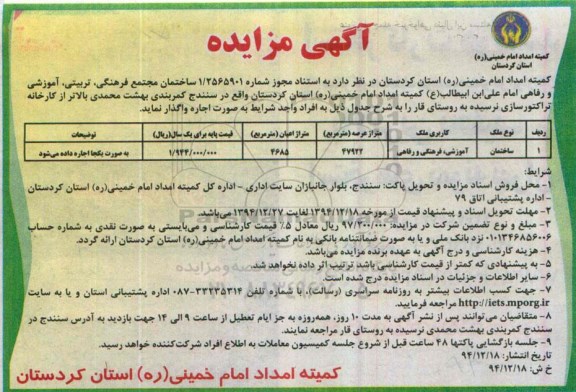 آگهی مزایده
کمیته امداد امام خمینی(ره)
استان کردستان
کمیته امداد امام خمینی(ره) استان کردستان در نظر دارد به استناد مجوز شماره ۱/۲۵۶۵۹۰۱ ساختمان مجتمع فرهنگی، تربیتی، آموزشی
و رفاهی امام علی‌ابن ابیطالب(ع) کمیته امداد امام خمینی(ره) استان کردستان واقع در سنندج کمربندی بهشت محمدی بالاتر از کارخانه
تراکتورسازی نرسیده به روستای قار را به شرح جدول ذیل به افراد واجد شرایط به صورت اجاره واگذار نماید.
ردیف نوع ملک کاربری ملک متراژ عرصه (مترمربع) متراژ اعیان (مترمربع) قیمت پایه برای یک سال(ریال) توضیحات
۱ ساختمان آموزشی، فرهنگی و رفاهی ۴۷۹۲۲ ۴۶۸۵ ۱/۹۴۴/۰۰۰/۰۰۰ به صورت یکجا اجاره داده می‌شود
شرایط:
۱- محل فروش اسناد مزایده و تحویل پاکت: سنندج، بلوار جانبازان سایت اداری - اداره کل کمیته امداد امام خمینی(ره) استان کردستان
- اداره پشتیبانی اتاق ۷۹
۲- مهلت تحویل اسناد و پیشنهاد قیمت از مورخه ۱۳۹۴/۱۲/۱۸ لغایت ۱۳۹۴/۱۲/۲۷ می‌باشد.
۳- مبلغ و نوع تضمین شرکت در مزایده: ۹۷/۳۰۰/۰۰۰ ریال معادل ۵٪ قیمت کارشناسی و می‌بایستی به صورت نقدی به شماره حساب
۰۱۰۱۳۴۶۸۵۶۰۰۶ نزد بانک ملی و یا به صورت ضمانتنامه بانکی به نام کمیته امداد امام خمینی(ره) استان کردستان ارائه گردد.
۴- هزینه کارشناسی و درج آگهی به عهده برنده مزایده می‌باشد.
۵- به پیشنهادی که کمتر از قیمت کارشناسی باشد ترتیب اثر داده نخواهد شد.
۶- سایر اطلاعات و جزئیات در اسناد مزایده درج شده است.
۷- جهت کسب اطلاعات بیشتر به روزنامه سراسری (رسالت)، با شماره تلفن ۳۳۲۳۵۳۱۴-۰۸۷ اداره پشتیبانی استان و یا به سایت
http://iets.mporg.ir مراجعه فرمایید.
۸- متقاضیان می‌توانند پس از نشر آگهی به مدت ۱۰ روز، همه‌روزه به جز ایام تعطیل از ساعت ۹ الی ۱۴ جهت بازدید به آدرس سنندج در
سنندج کمربندی بهشت محمدی نرسیده به روستای قار مراجعه نمایند.
۹- جلسه بازگشایی پاکتها ۴۸ ساعت قبل از شروع جلسه کمیسیون معاملات به اطلاع افراد شرکت‌کننده خواهد رسید.
تاریخ انتشار: ۹۴/۱۲/۱۸
خ ش: ۹۴/۱۲/۱۸
کمیته امداد امام خمینی(ره) استان کردستان